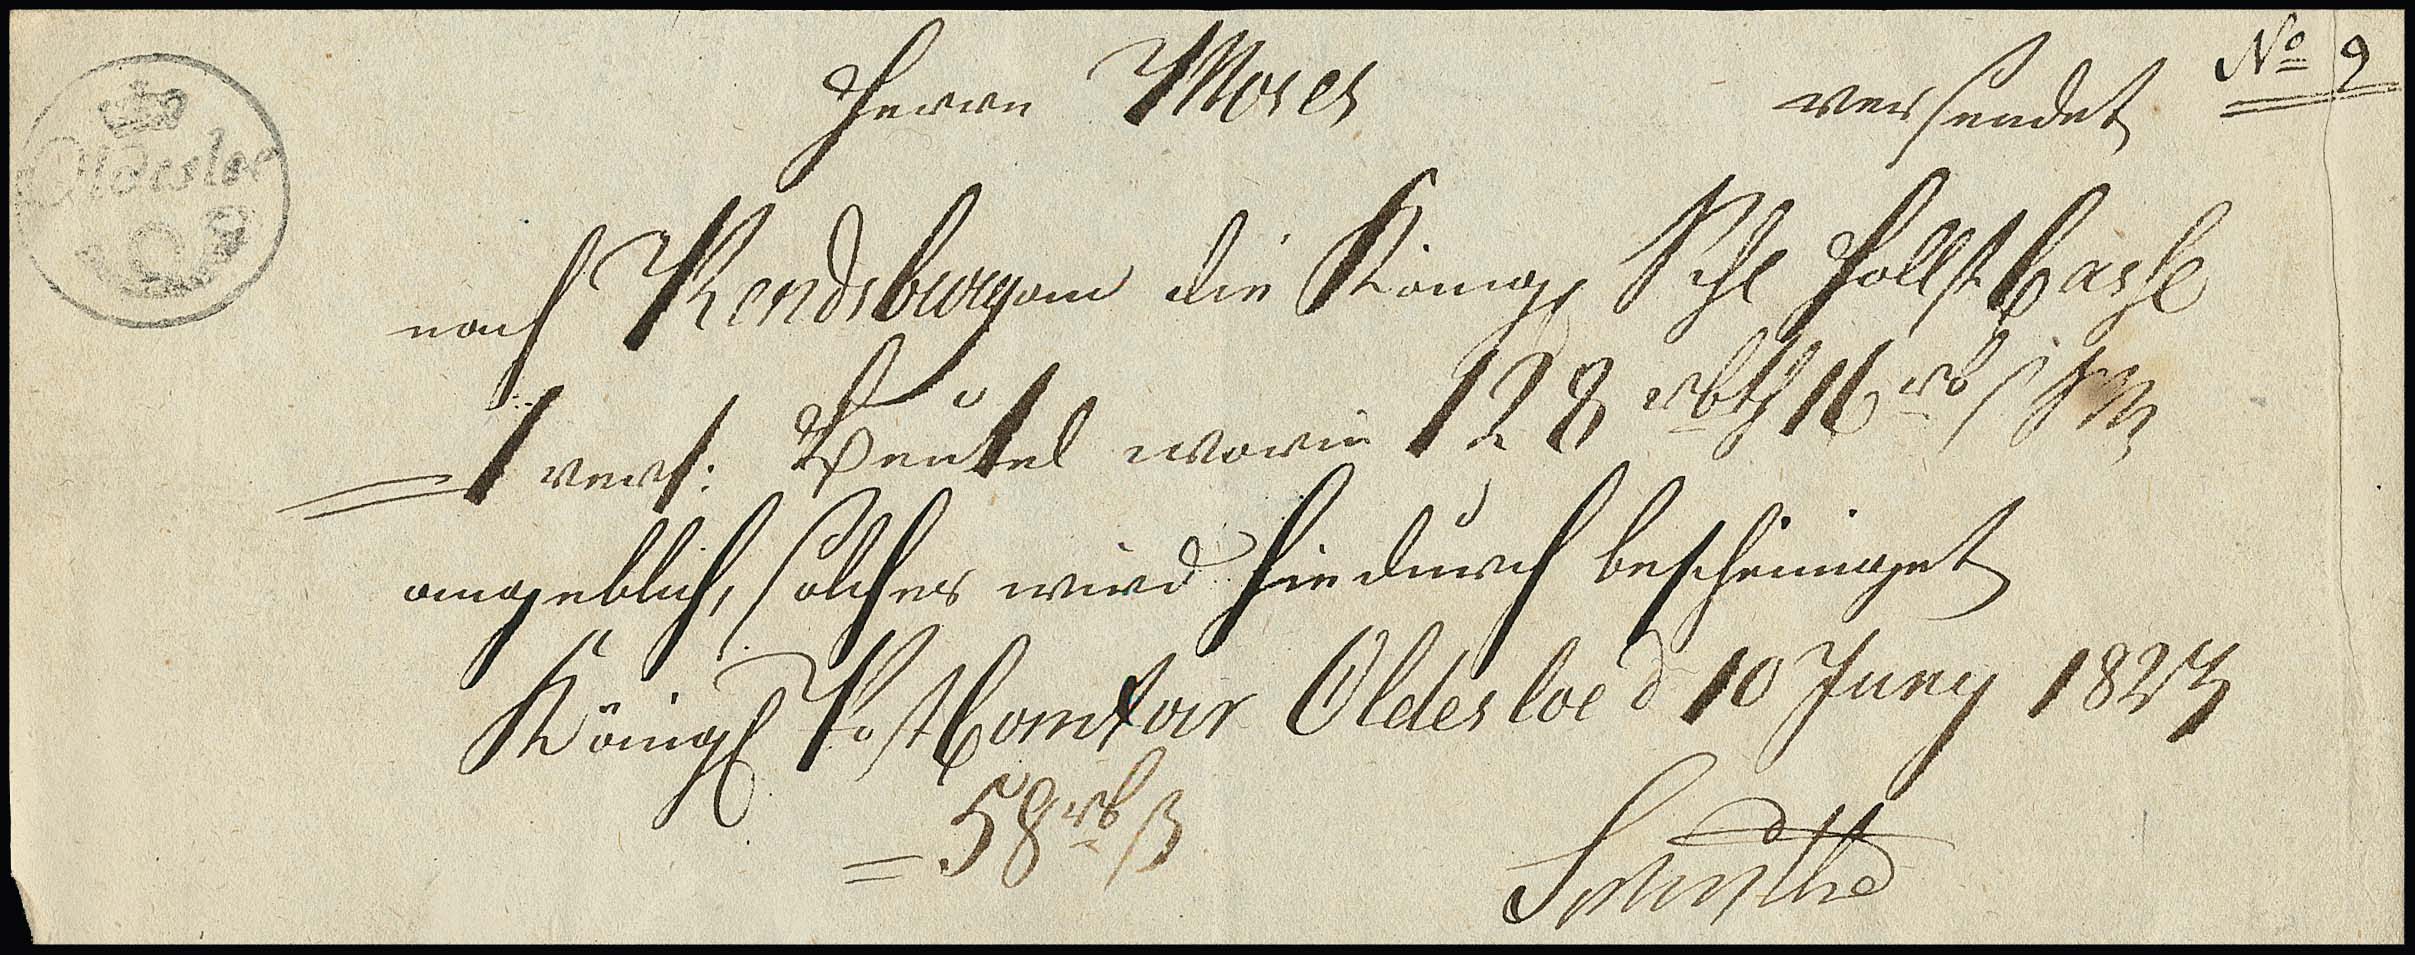 No 9
Oldesloe
Herrn Moses versendet
nach Rendsburg an die Königl Schl Hollst Casse
1 vers: Beutel worin 128 rbth 16 rbß SM
angeblich, solches wird hiedurch bescheiniget
Königl Post Comtoir Oldesloe d 10 Juny 1823
58 rbß